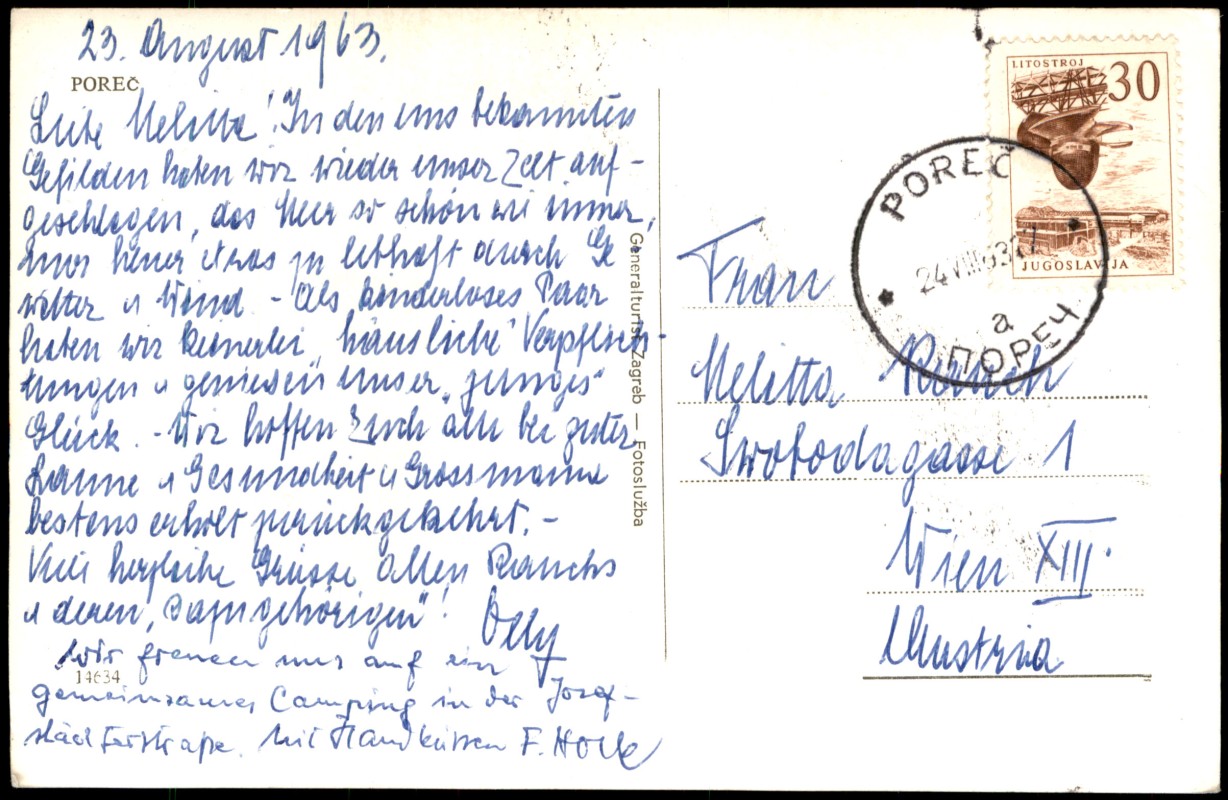 23. August 1963.
POREČ
Liebe Melitta! In den uns bekannten
Gefilden haben wir wieder unser Zelt auf-
geschlagen, das Meer so schön wie immer,
nur heuer etwas zu lebhaft durch Ge
witter u Wind. - Als kinderloses Paar
haben wir keinerlei „häusliche" Verpflich-
tungen u geniesen unser „junges"
Glück. - Wir hoffen Euch alle bei guter
Laune u Gesundheit u Grossmama
bestens erholt zurückgekehrt. -
Viele herzliche Grüsse allen Rauchs
u deren „Dazugehörigen"! Olly
Wir freuen uns auf ein
14634
gemeinsames Camping in der Josef-
städterstraße. Mit Handküssen F.
Generalturist Zagreb — Fotoslužba
LITOSTROJ
30
JUGOSLAVIJA
POREČ
24 VIII 63 17
a
ПОРЕЧ
Frau
Melitta Rauch
Swobodagasse 1
Wien XIII.
Austria